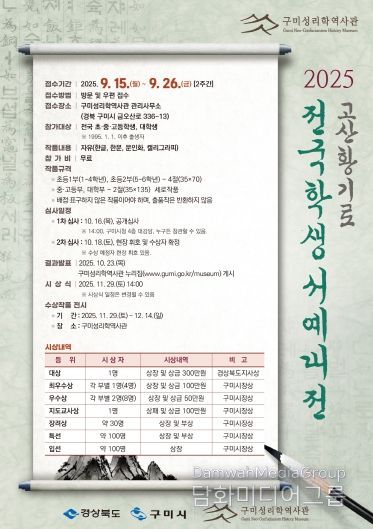 구미성리학역사관
Gumi Neo-Confucianism History Museum
2025
고산황기로
전국학생서예대전
접수기간 : 2025. 9. 15.(월) ~ 9. 26.(금) [2주간]
접수방법 : 방문 및 우편 접수
접수장소 : 구미성리학역사관 관리사무소
(경북 구미시 금오산로 336-13)
참가대상 : 전국 초·중·고등학생, 대학생
※ 1995. 1. 1. 이후 출생자
작품내용 : 자유(한글, 한문, 문인화, 캘리그라피)
참 가 비 : 무료
작품규격
◦ 초등1부(1~4학년), 초등2부(5~6학년) - 4절(35×70)
◦ 중·고등부, 대학부 - 2절(35×135) 세로작품
◦ 배접·표구하지 않은 작품이어야 하며, 출품작은 반환하지 않음
심사일정
◦ 1차 심사 : 10. 16.(목), 공개심사
※ 14:00, 구미시청 4층 대강당, 누구든 참관할 수 있음.
◦ 2차 심사 : 10. 18.(토), 현장 휘호 및 수상자 확정
※ 수상 예정자 현장 휘호 있음.
결과발표 : 2025. 10. 23.(목)
구미성리학역사관 누리집(www.gumi.go.kr/museum) 게시
시 상 식 : 2025. 11. 29.(토) 14:00
※ 시상식 일정은 변경될 수 있음
수상작품 전시
◦ 기 간 : 2025. 11. 29.(토) ~ 12. 14.(일)
◦ 장 소 : 구미성리학역사관
시상내역
등 위 시 상 자 시상내역 비 고
대상 1명 상장 및 상금 300만원 경상북도지사상
최우수상 각 부별 1명(4명) 상장 및 상금 100만원 구미시장상
우수상 각 부별 2명(8명) 상장 및 상금 50만원 구미시장상
지도교사상 1명 상패 및 상금 100만원 구미시장상
장려상 약 30명 상장 및 부상 구미시장상
특선 약 100명 상장 및 부상 구미시장상
입선 약 100명 상장 구미시장상
DamwahMediaGroup
담화미디어그룹
경상북도
구미시
구미성리학역사관